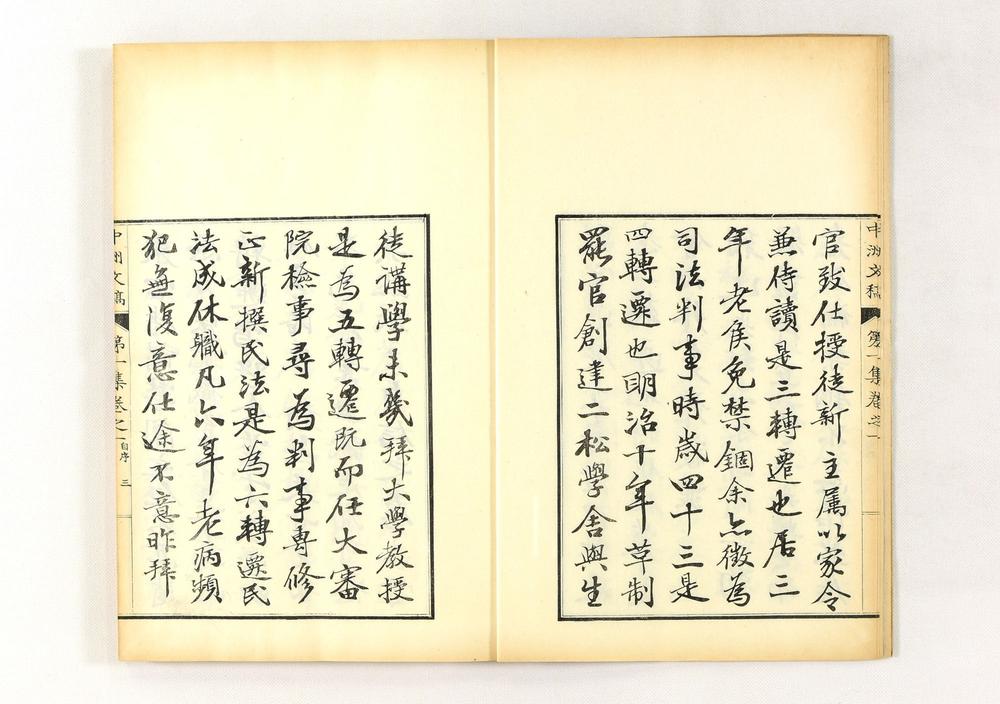 中洲文稿 第一集卷之一
官致仕授徒新主属以家令
兼侍讀是三轉遷也居三
年老侯免禁錮余亦徴為
司法判事時歳四十三是
四轉遷也明治十年草制
罷官創建二松學舎與生
徒講學未幾拜大學教授
是為五轉遷既而任大審
院檢事尋為判事專修
正新撰民法是為六轉遷民
法成休職凡六年老病頻
犯無復意仕途不意昨拜
中洲文稿 第一集卷之一 自序 三